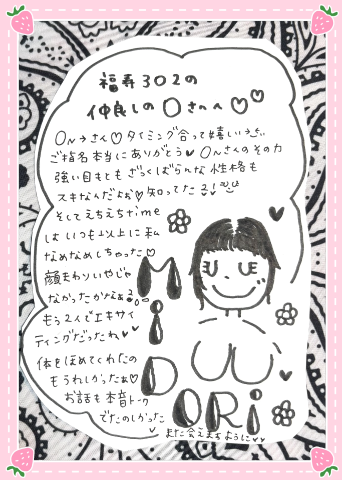 福寿302の
仲良しの〇さんへ♡♡
〇ん→さん♡タイミング合って嬉しい
ご指名本当にありがとう♥〇んさんのその力
強い目もとも ざっくばらんな性格も
スキなんだよぉ♡知ってた?!
そしてえちえちtime
は いつも以上に私
なめなめしちゃった♡
顔もわりいやじゃ
なかったかなぁ?
もう2人でエキサイ
ティングだったね♥
体をほめてくれたの
もうれしかったぁ♡
お話も本音トーク
でたのしかった
また会えますように♥♥
MiDORi